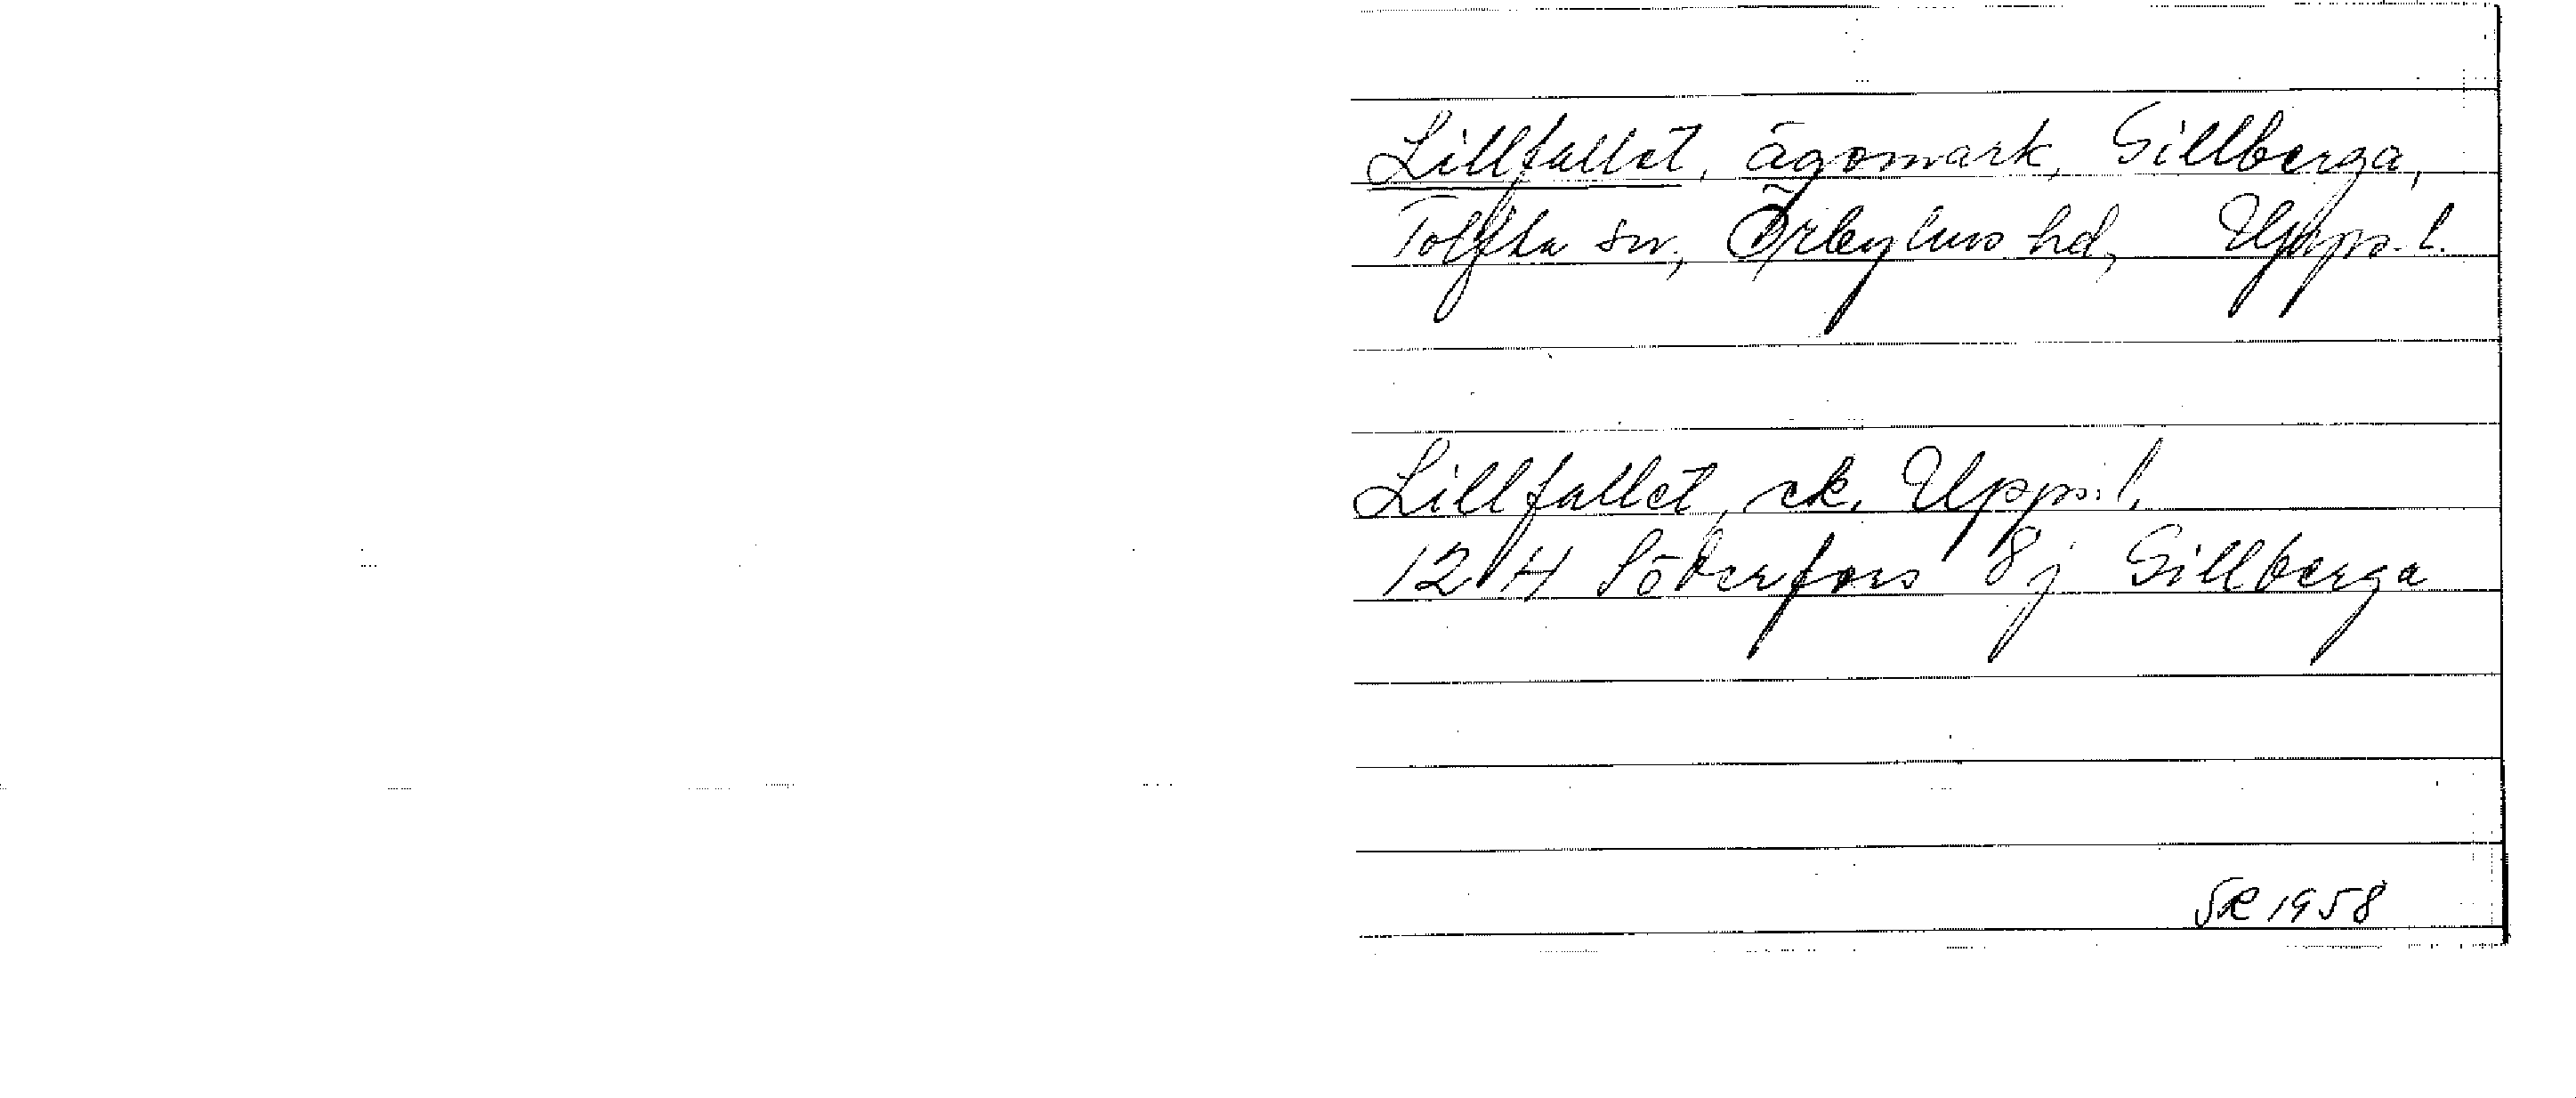 Lillfallet, ägomark, Gillberga,
Tolfta sn, Örbyhus hd, Upps. l.
Lillfallet, ek. Upps. l.
12 H Söderfors 8 j Gillberga
SR 1958